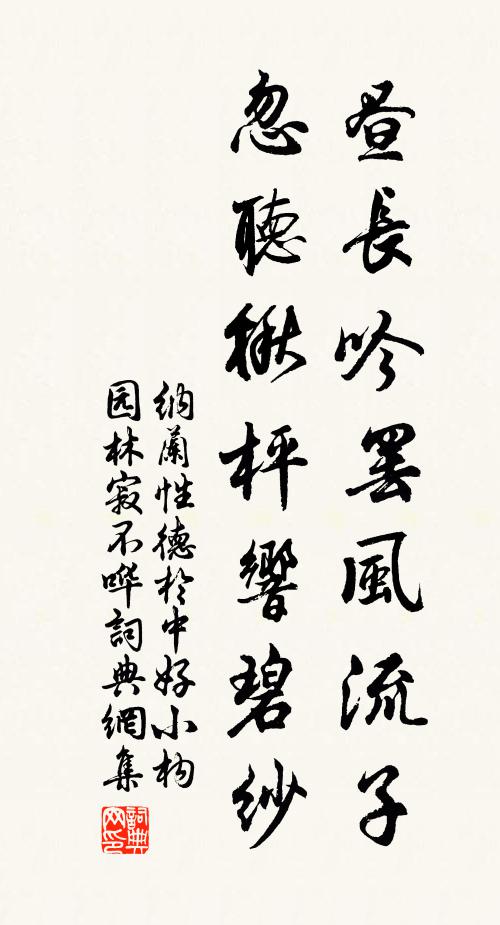 昼長吟罷風流子
忽聽楸枰響碧紗
納蘭性德於中好小构
园林寂不哗詞典網集
詞典网印